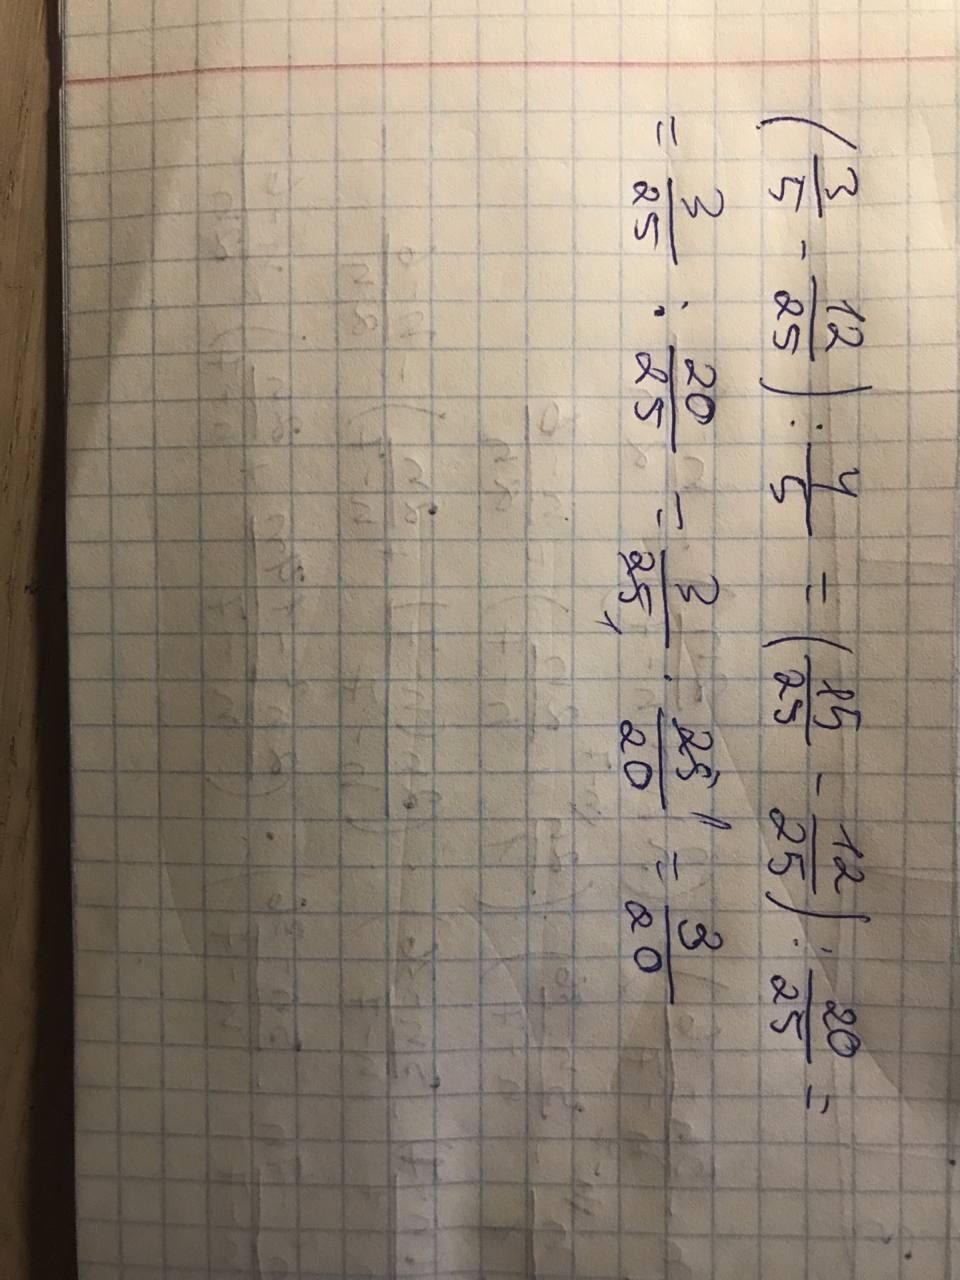 (3/5 - 12/25) : 4/5 = (15/25 - 12/25) : 20/25 =
= 3/25 : 20/25 = 3/25 1 · 25 1/20 = 3/20